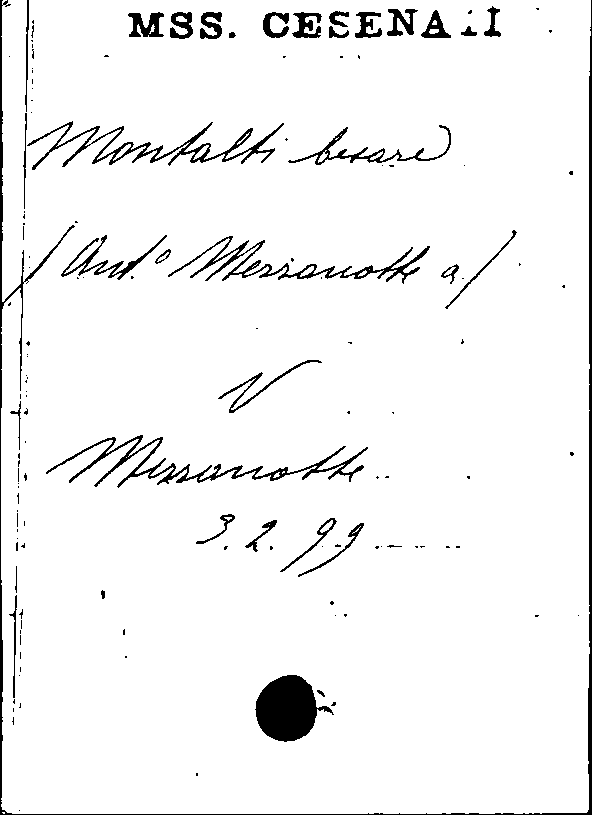 MSS. CESENATI
Montalti Cesare
/ Ant.º Mezzanotte a /
V
Mezzanotte
3. 2. 99